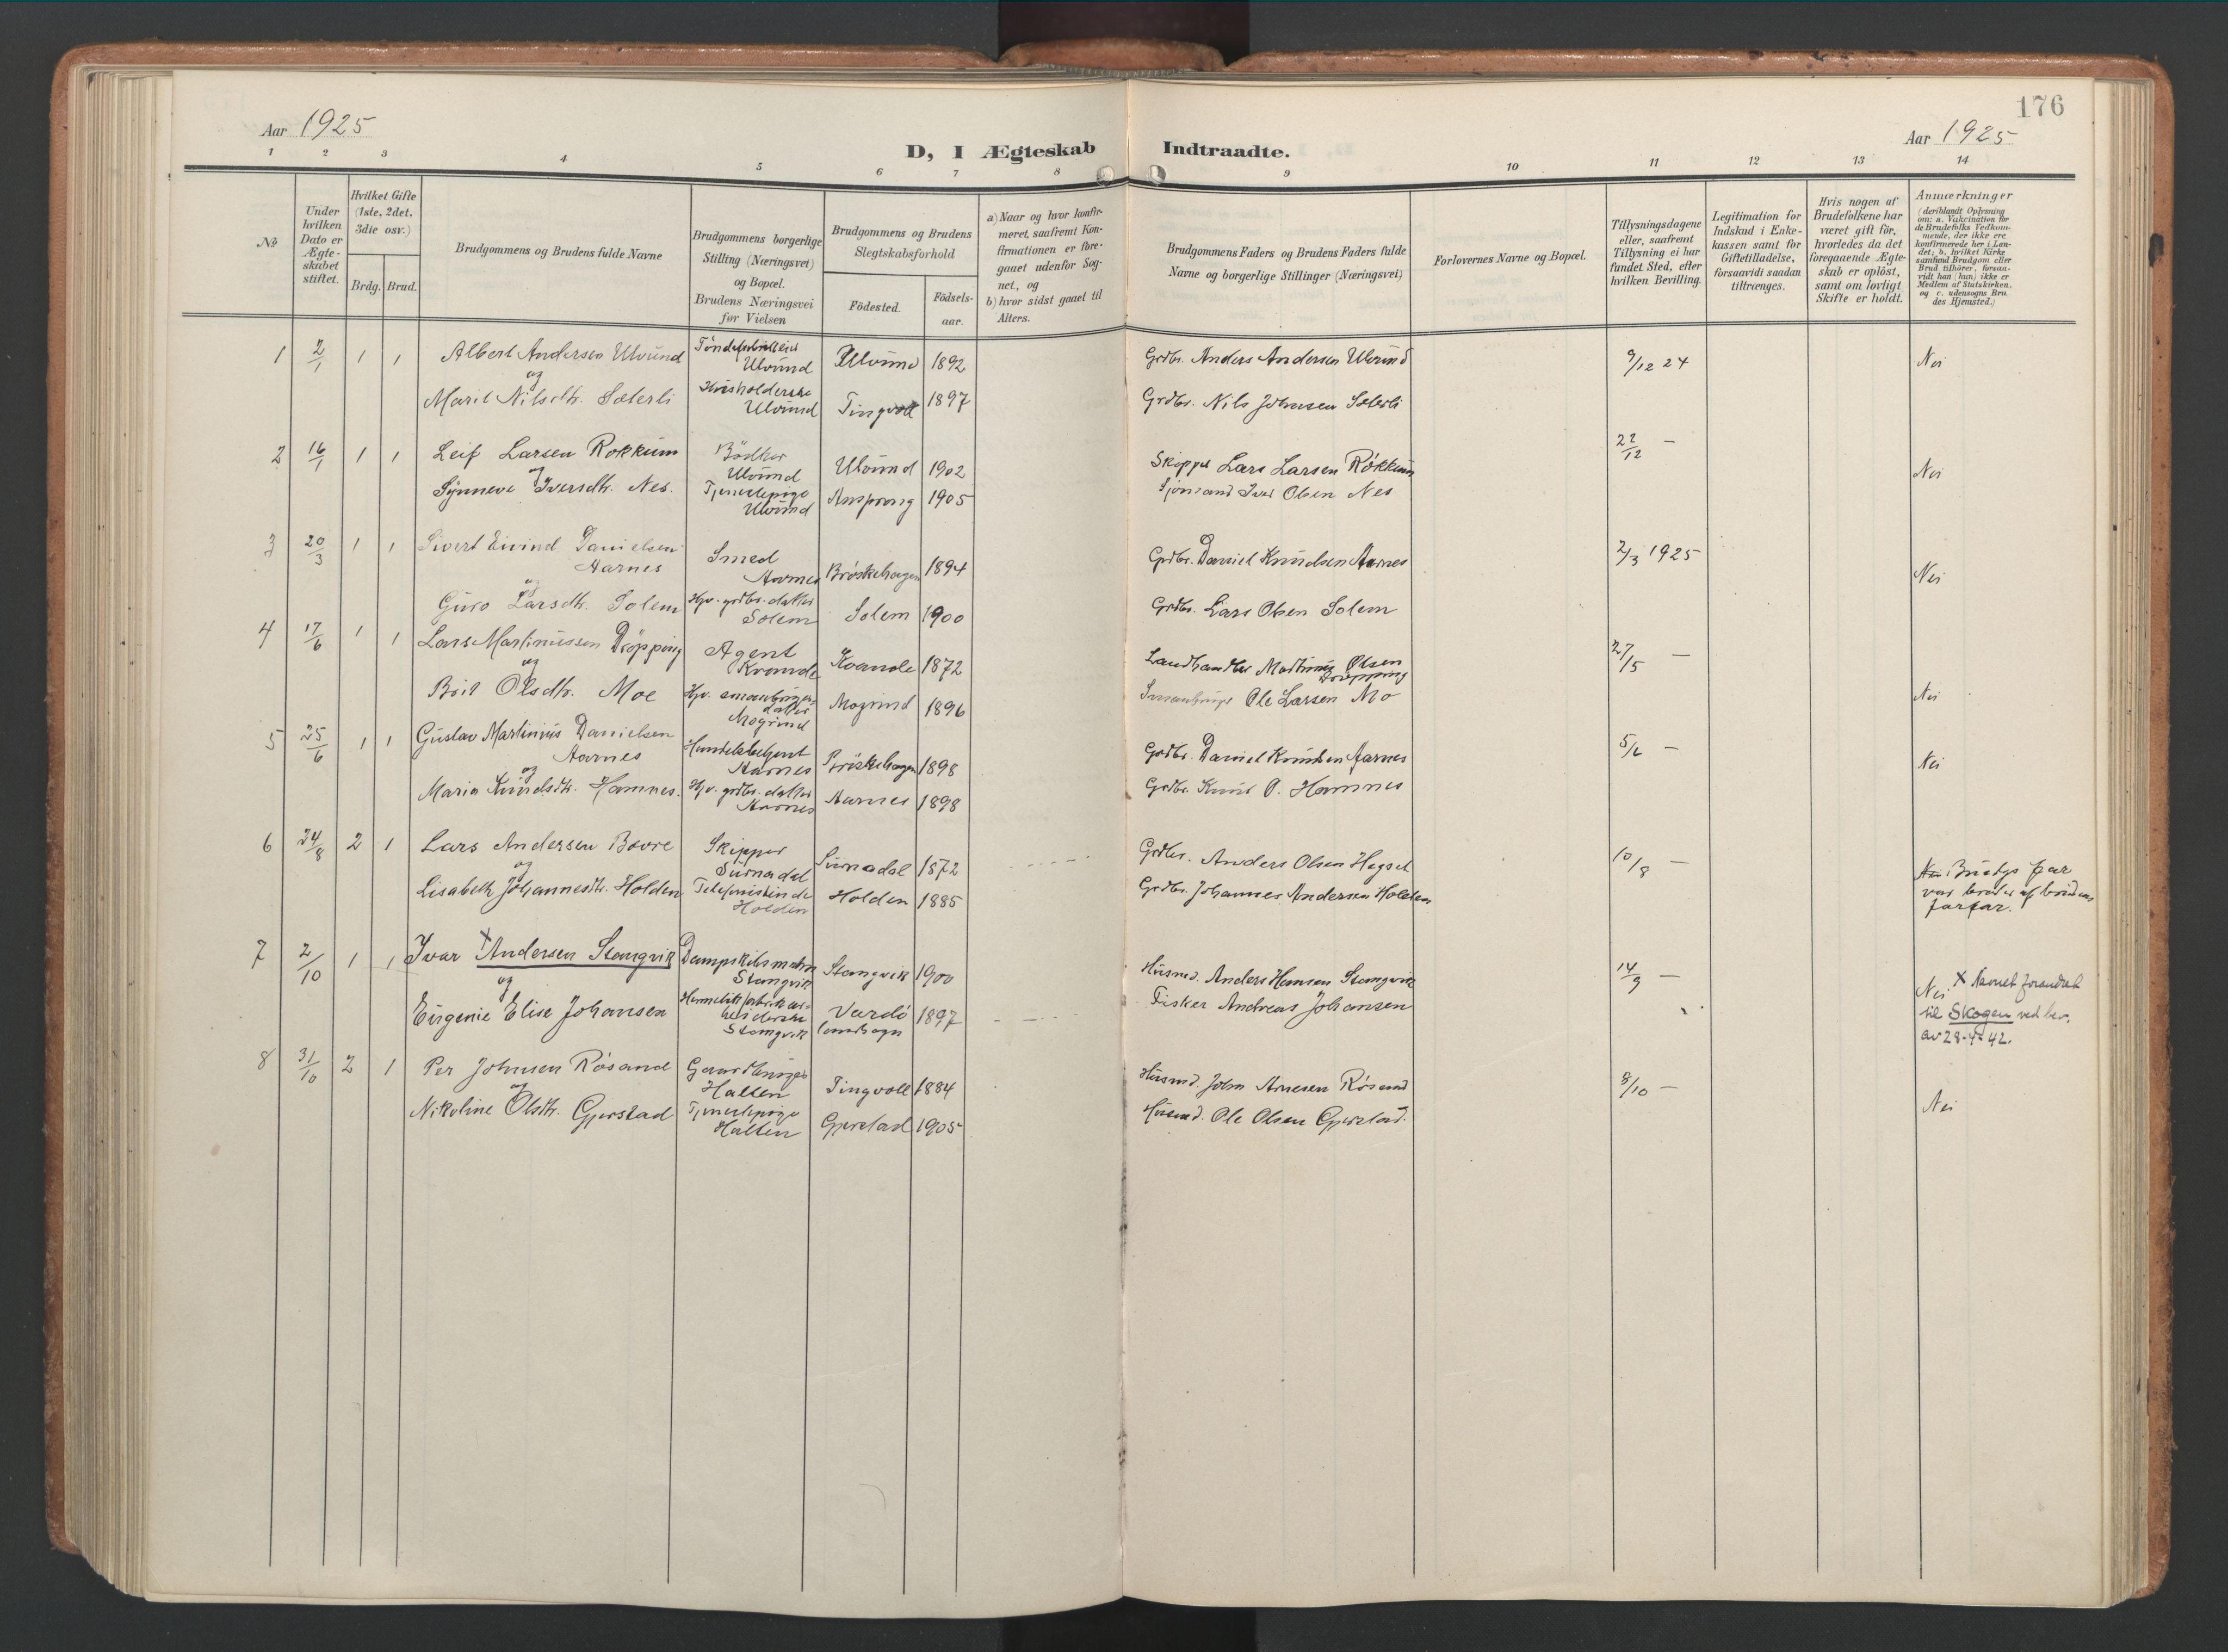 176
Aar 1925
Aar 1925
D, I Ægteskab Indtraadte.
1 2 3 4 5 6 7 8 9 10 11 12 13 14
No
Under hvilken Dato er Ægteskabet stiftet.
Hvilket Gifte (1ste, 2det, 3die osv.)
Brdg. Brud.
Brudgommens og Brudens fulde Navne
Brudgommens borgerlige Stilling (Næringsvei) og Bopæl. Brudens Næringsvei før Vielsen
Brudgommens og Brudens Slegtskabsforhold
Födested.
Födsels-aar.
a) Naar og hvor konfirmeret, saafremt Konfirmationen er foregaaet udenfor Sognet, og
b) hvor sidst gaaet til Alters.
Brudgommens Faders og Brudens Faders fulde Navne og borgerlige Stillinger (Næringsvei)
Forlovernes Navne og Bopæl.
Tillysningsdagene eller, saafremt Tillysning ei har fundet Sted, efter hvilken Bevilling.
Legitimation for Indskud i Enkekassen samt for Giftetilladelse, forsaavidt saadan tiltrænges.
Hvis nogen af Brudefolkene har været gift før, hvorledes da det foregaaende Ægteskab er oplöst, samt om lovligt Skifte er holdt.
Anmærkninger
(deriblandt Oplysning om: a. Vakcination for de Brudefolks Vedkommende, der ikke ere konfirmerede her i Landet; b. hvilket Kirkesamfund Brudgom eller Brud tilhörer, forsaavidt han (hun) ikke er Medlem af Statskirken, og c. udensogns Brudes Hjemsted.)
1 2/1 1 1 Albert Andersen Ulvund Ulvund Ulvund 1892 Grdbr. Anders Andersen Ulvund 9/12 24 Nei
og
Marit Nilsdtr. Sæterli Husholderske Ulvund Tingvoll 1897 Grdbr. Nils Johnsen Sæterli
2 16/1 1 1 Leif Larsen Rokkum Bödker Ulvund Ulvund 1902 Skipper Lars Larsen Rökkum 22/12 — Nei
og
Synneve Iversdtr. Nes. Tjenestepige Ulvund 1905 Sjømand Iver Olsen Nes
3 20/3 1 1 Sivert Eivind Danielsen Aarnes Smed Aarnes Bröskehagen 1894 Grdbr. Daniel Knudsen Aarnes 2/3 1925 Nei
og
Guro Larsdtr. Solem Hjv. grdbr. datter Solem Solem 1900 Grdbr. Lars Olsen Solem
4 17/6 1 1 Lars Martinussen Dröpping Agent Kvande Kvande 1872 Landhandler Martinus Olsen Dröpping 27/5 — Nei
og
Brit Olsdtr. Moe Hjv. datter Mogrind Mogrind 1896 Ole Larsen Mo
5 25/6 1 1 Gustav Martinius Danielsen Aarnes Handelsbetjent Aarnes Bröskehagen 1898 Grdbr. Daniel Knudsen Aarnes 5/6 — Nei
og
Maria Knudsdtr. Hamnes. Hjv. grdbr. datter Aarnes Aarnes 1898 Grdbr. Knud O. Hamnes
6 24/8 2 1 Lars Andersen Bøvre Skipper Surnadal Surnadal 1872 Grdbr. Anders Olsen Hegset 10/8 — Nei Brudgs far var broder af brudens farfar.
og
Lisabeth Johannesdtr. Holden Telefonistinde Holden Holden 1885 Grdbr. Johannes Andersen Holden
7 2/10 1 1 Ivar × Andersen Stangvik Dampskibsmatros Stangvik Stangvik 1900 Husmd. Anders Hansen Stangvik 14/9 — Nei × Navnet forandret til Skogen ved bev. av 28-4-42.
og
Eugenie Elise Johansen Hermetikfabrikarbeiderske Stangvik Vardö landsogn 1897 Fisker Andreas Johansen
8 31/10 2 1 Per Johnsen Rösand Gaardbruger Halten Tingvoll 1884 Husmd. John Arnesen Rösand 8/10 — Nei
og
Nikoline Olsdtr. Gjerstad Tjenestepige Halten Gjerstad 1905 Husmd. Ole Olsen Gjerstad.